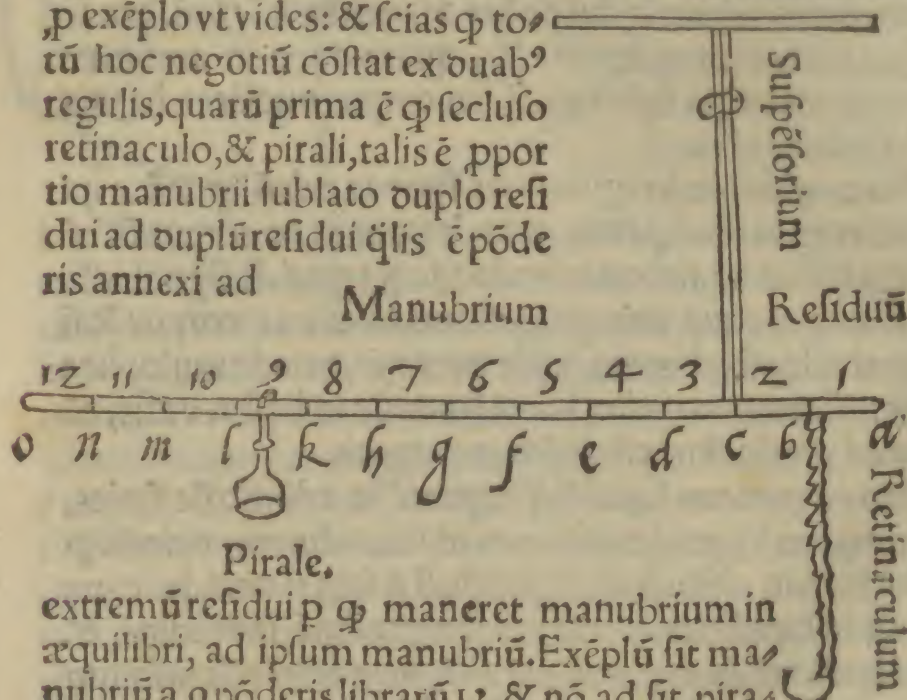 ,p exēplo vt vides: & ſcias ꝙ to⸗
tū hoc negotiū cōſtat ex duabꝰ
regulis,quarū prima ē ꝙ ſecluſo
retinaculo,& pirali,talis ē ,ppor
tio manubrii ſublato duplo reſi
dui ad duplū reſidui q̈lis ē pōde
ris annexi ad
Suſpēſorium
Manubrium
Reſiduū
12 11 10 9 8 7 6 5 4 3 2 1
o n m l k h g f e d c b a
Retinaculum
Pirale.
extremū reſidui p ꝙ maneret manubrium in
æquilibri, ad ipſum manubriū.Exēplū ſit ma⸗
nubriū a o pōderis librarū & nō ad ſit pira⸗